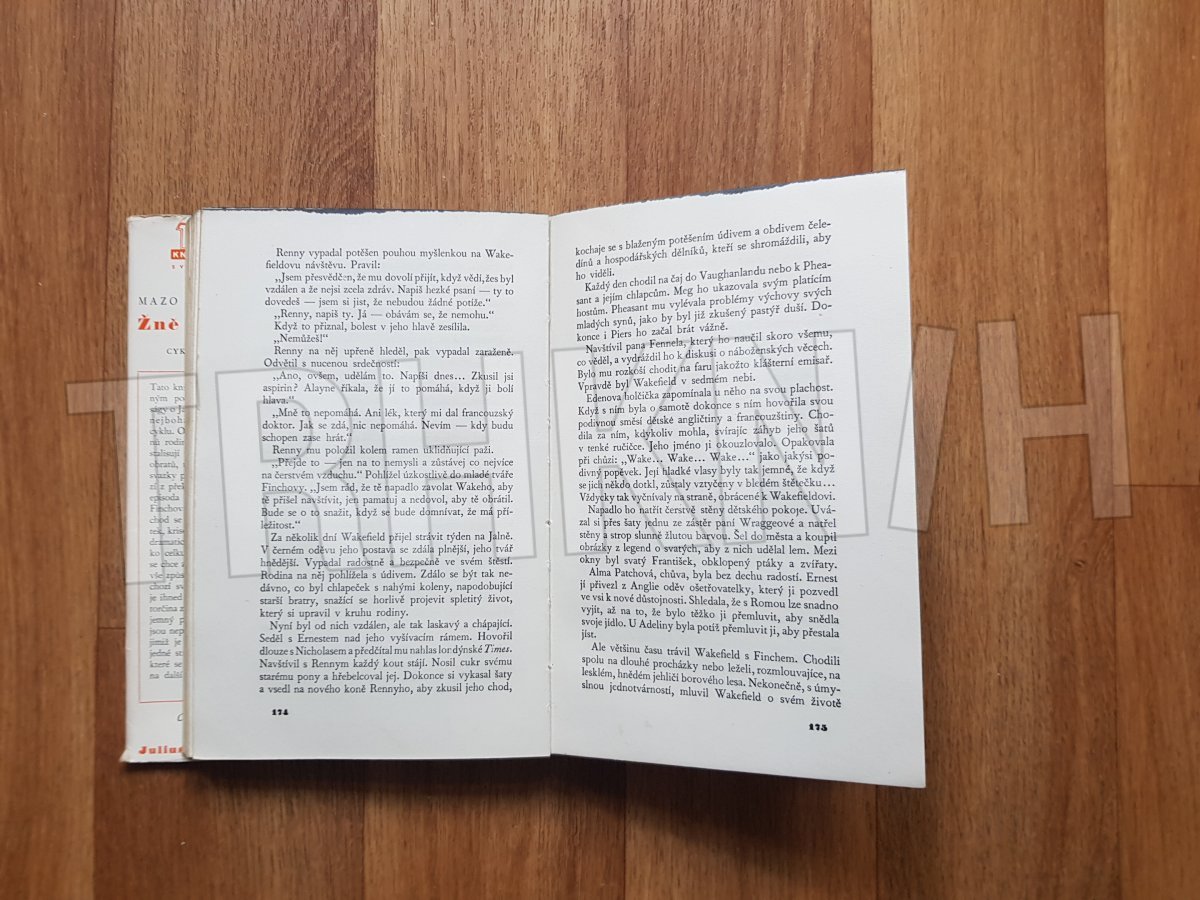 KN
MAZO
Žně
CYK
Tato kn
ným po
ságy o Ja
nejbohá
cyklu. O
nů rodin
stalisují
obratů,
svazky p
ní z přek
episoda
Finchov
chod se
tek, kris
dramatic
ko celku
se chce z
vše způs
chozí sv
je ihned
torčina z
jemný p
jsou nep
jimiž je
jedné st
které se
na další
Julius
Renny vypadal potěšen pouhou myšlenkou na Wake-
fieldovu návštěvu. Pravil:
„Jsem přesvědčen, že mu dovolí přijít, když vědí, žes byl
vzdálen a že nejsi zcela zdráv. Napiš hezké psaní — ty to
dovedeš — jsem si jist, že nebudou žádné potíže.“
„Renny, napiš ty. Já — obávám se, že nemohu.“
Když to přiznal, bolest v jeho hlavě zesílila.
„Nemůžeš!“
Renny na něj upřeně hleděl, pak vypadal zaraženě.
Odvětil s nucenou srdečností:
„Ano, ovšem, udělám to. Napíši dnes... Zkusil jsi
aspirin? Alayne říkala, že jí to pomáhá, když ji bolí
hlava.“
„Mně to nepomáhá. Ani lék, který mi dal francouzský
doktor. Jak se zdá, nic nepomáhá. Nevím — kdy budu
schopen zase hrát.“
Renny mu položil kolem ramen uklidňující paži.
„Přejde to — jen na to nemysli a zůstávej co nejvíce
na čerstvém vzduchu.“ Pohlížel úzkostlivě do mladé tváře
Finchovy. „Jsem rád, že tě napadlo zavolat Wakeho, aby
tě přišel navštívit, jen pamatuj a nedovol, aby tě obrátil.
Bude se o to snažit, když se bude domnívat, že má pří-
ležitost.“
Za několik dní Wakefield přijel strávit týden na Jalně.
V černém oděvu jeho postava se zdála plnější, jeho tvář
hnědější. Vypadal radostně a bezpečně ve svém štěstí.
Rodina na něj pohlížela s údivem. Zdálo se být tak ne-
dávno, co byl chlapeček s nahými koleny, napodobující
starší bratry, snažící se horlivě projevit spletitý život,
který si upravil v kruhu rodiny.
Nyní byl od nich vzdálen, ale tak laskavý a chápající.
Seděl s Ernestem nad jeho vyšívacím rámem. Hovořil
dlouze s Nicholasem a předčítal mu nahlas londýnské Times.
Navštívil s Rennym každý kout stájí. Nosil cukr svému
starému pony a hřebelcoval jej. Dokonce si vykasal šaty
a vsedl na nového koně Rennyho, aby zkusil jeho chod,
174
kochaje se s blaženým potěšením údivem a obdivem čele-
dínů a hospodářských dělníků, kteří se shromáždili, aby
ho viděli.
Každý den chodil na čaj do Vaughanlandu nebo k Phea-
sant a jejím chlapcům. Meg ho ukazovala svým platícím
hostům. Pheasant mu vylévala problémy výchovy svých
mladých synů, jako by byl již zkušený pastýř duší. Do-
konce i Piers ho začal brát vážně.
Navštívil pana Fennela, který ho naučil skoro všemu,
co věděl, a vydráždil ho k diskusi o náboženských věcech.
Bylo mu rozkoší chodit na faru jakožto klášterní emisař.
Vpravdě byl Wakefield v sedmém nebi.
Edenova holčička zapomínala u něho na svou plachost.
Když s ním byla o samotě dokonce s ním hovořila svou
podivnou směsí dětské angličtiny a francouzštiny. Cho-
dila za ním, kdykoliv mohla, svírajíc záhyb jeho šatů
v tenké ručičce. Jeho jméno ji okouzlovalo. Opakovala
při chůzi: „Wake... Wake... Wake...“ jako jakýsi po-
divný popěvek. Její hladké vlasy byly tak jemné, že když
se jich někdo dotkl, zůstaly vztyčeny v bledém štětečku...
Vždycky tak vyčnívaly na straně, obrácené k Wakefieldovi.
Napadlo ho natřít čerstvě stěny dětského pokoje. Uvá-
zal si přes šaty jednu ze zástěr paní Wraggeové a natřel
stěny a strop slunně žlutou barvou. Šel do města a koupil
obrázky z legend o svatých, aby z nich udělal lem. Mezi
okny byl svatý František, obklopený ptáky a zvířaty.
Alma Patchová, chůva, byla bez dechu radostí. Ernest
jí přivezl z Anglie oděv ošetřovatelky, který ji pozvedl
ve vsi k nové důstojnosti. Shledala, že s Romou lze snadno
vyjít, až na to, že bylo těžko ji přemluvit, aby snědla
svoje jídlo. U Adeliny byla potíž přemluvit ji, aby přestala
jíst.
Ale většinu času trávil Wakefield s Finchem. Chodili
spolu na dlouhé procházky nebo leželi, rozmlouvajíce, na
lesklém, hnědém jehličí borového lesa. Nekonečně, s úmy-
slnou jednotvárností, mluvil Wakefield o svém životě
175
TRHKNIH